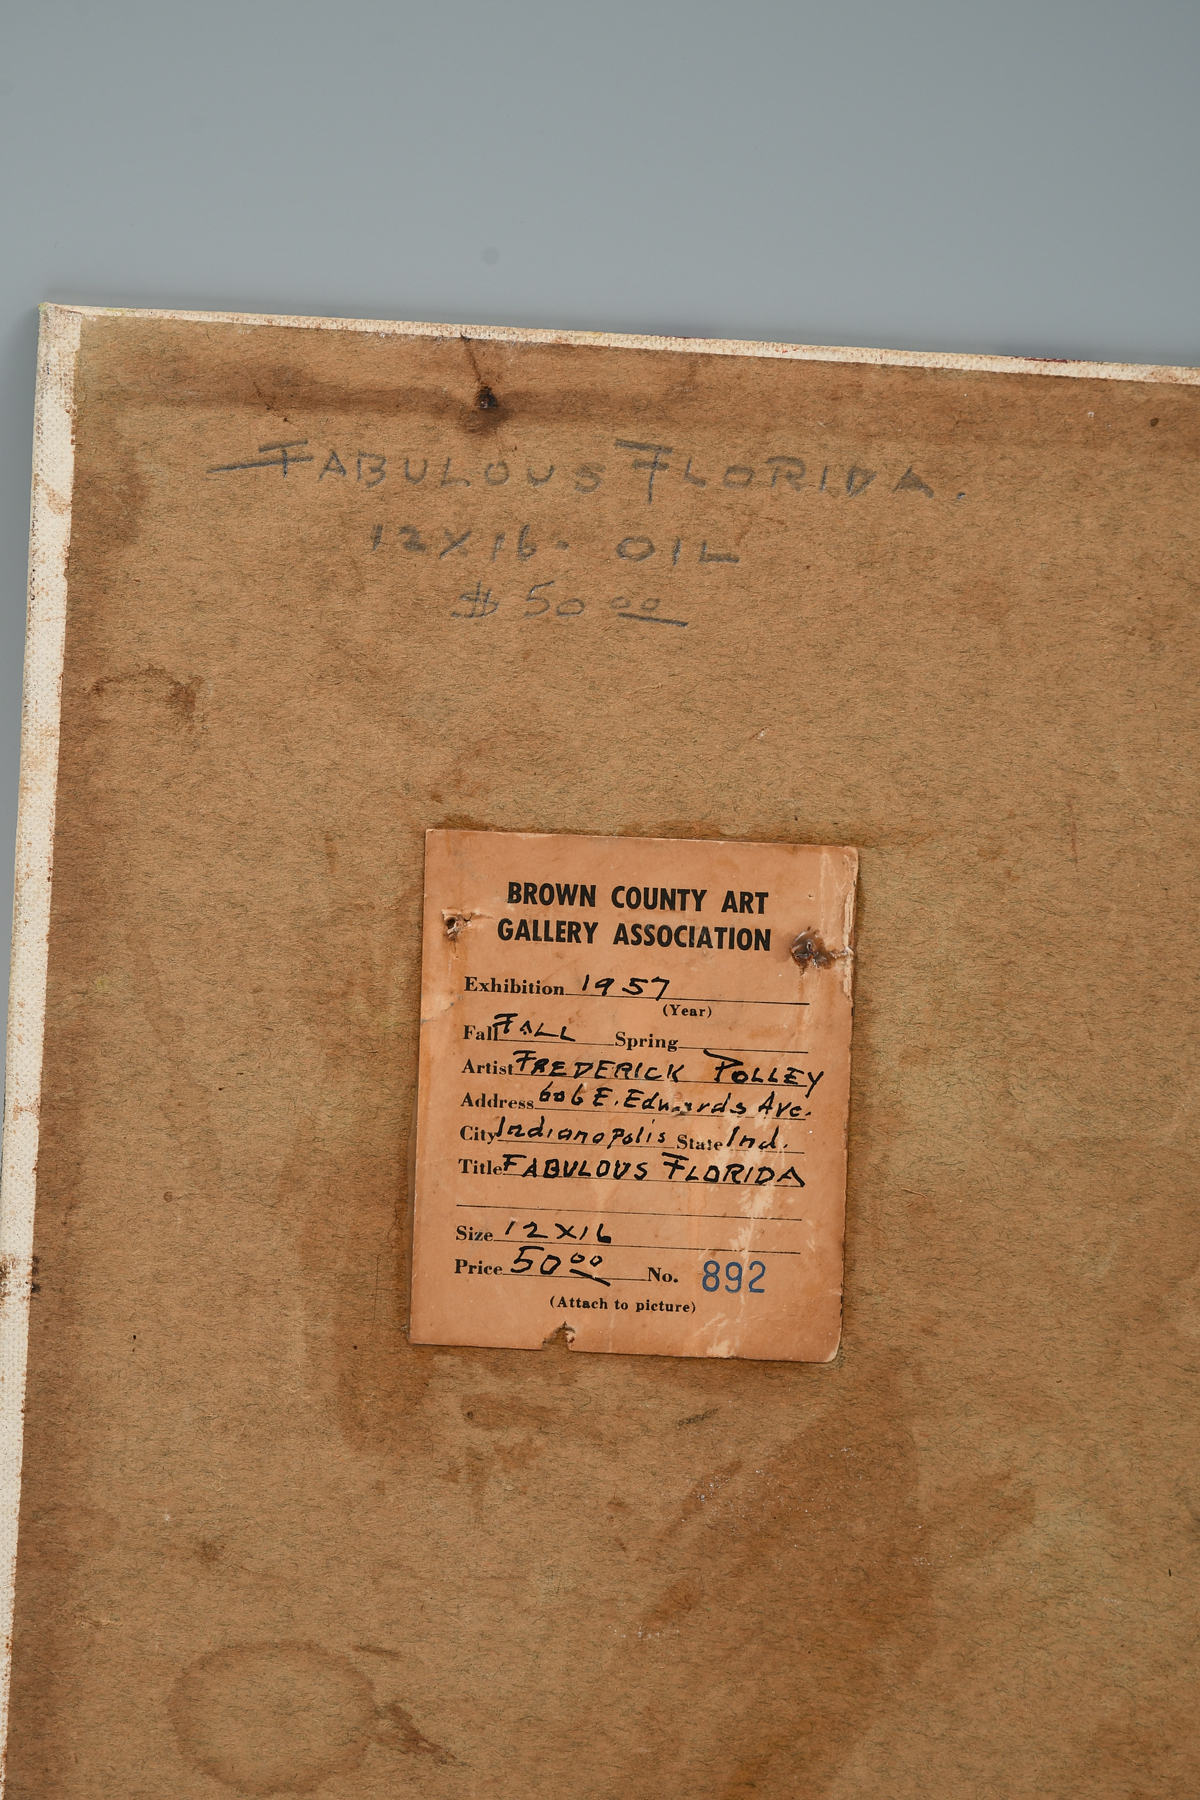 FABULOUS FLORIDA.
12X16- OIL
$50 00
BROWN COUNTY ART
GALLERY ASSOCIATION
Exhibition 1957
(Year)
Fall FALL Spring
Artist FREDERICK POLLEY
Address 606 E. Edwards Ave.
City Indianapolis State Ind.
Title FABULOUS FLORIDA
Size 12X16
Price 50 00 No. 892
(Attach to picture)